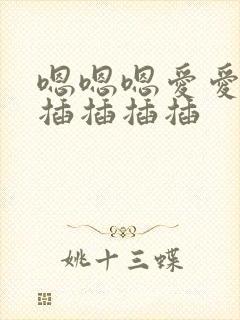 嗯嗯嗯爱爱
插插插插
姚十三蝶